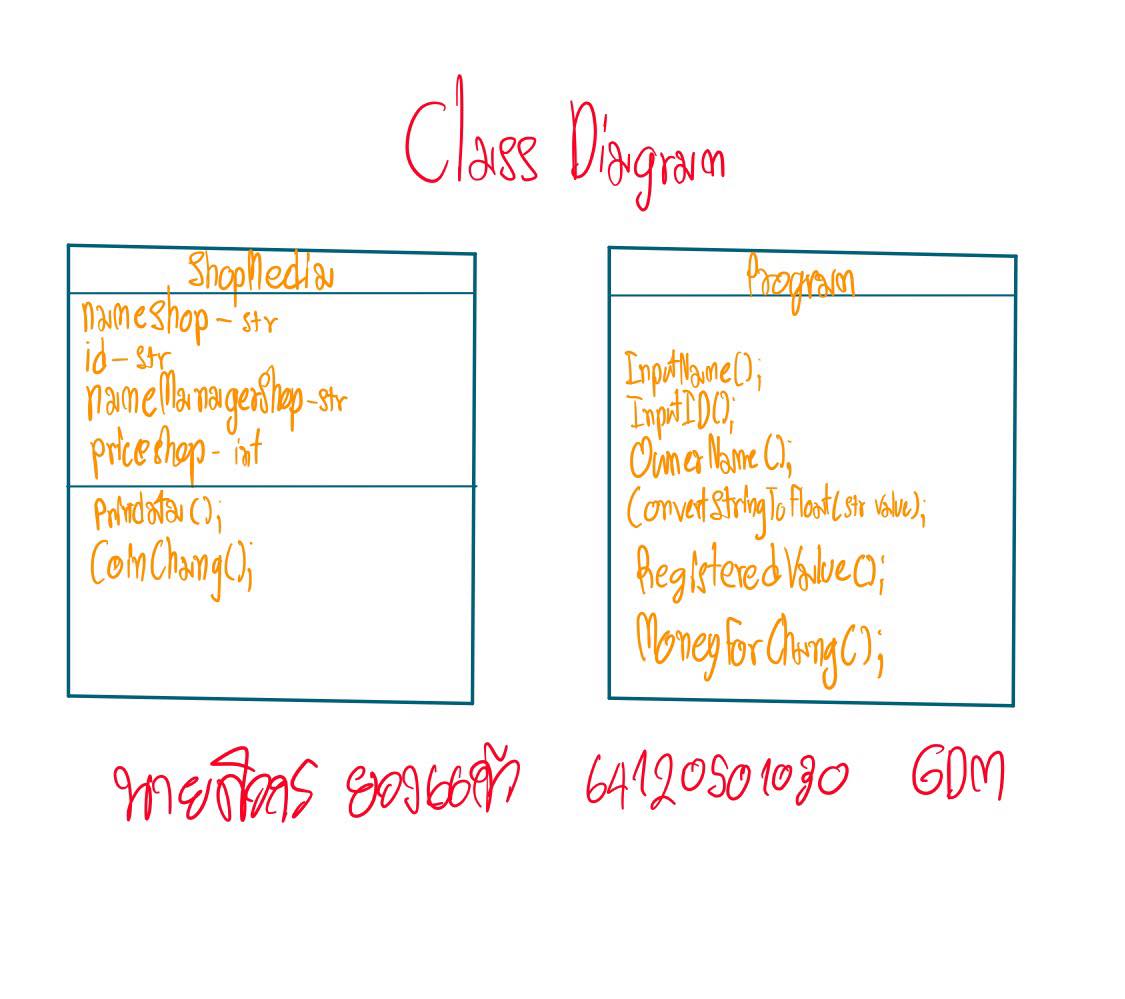 Class Diagram
ShopMedia
nameshop - str
id - str
nameManagerShop - str
priceshop - int
Prindata();
CoinChang();
Program
InputName();
InputID();
OwnerName();
ConvertStringToFloat(str value);
RegisteredValue();
MoneyForChang();
64120501030 GDM